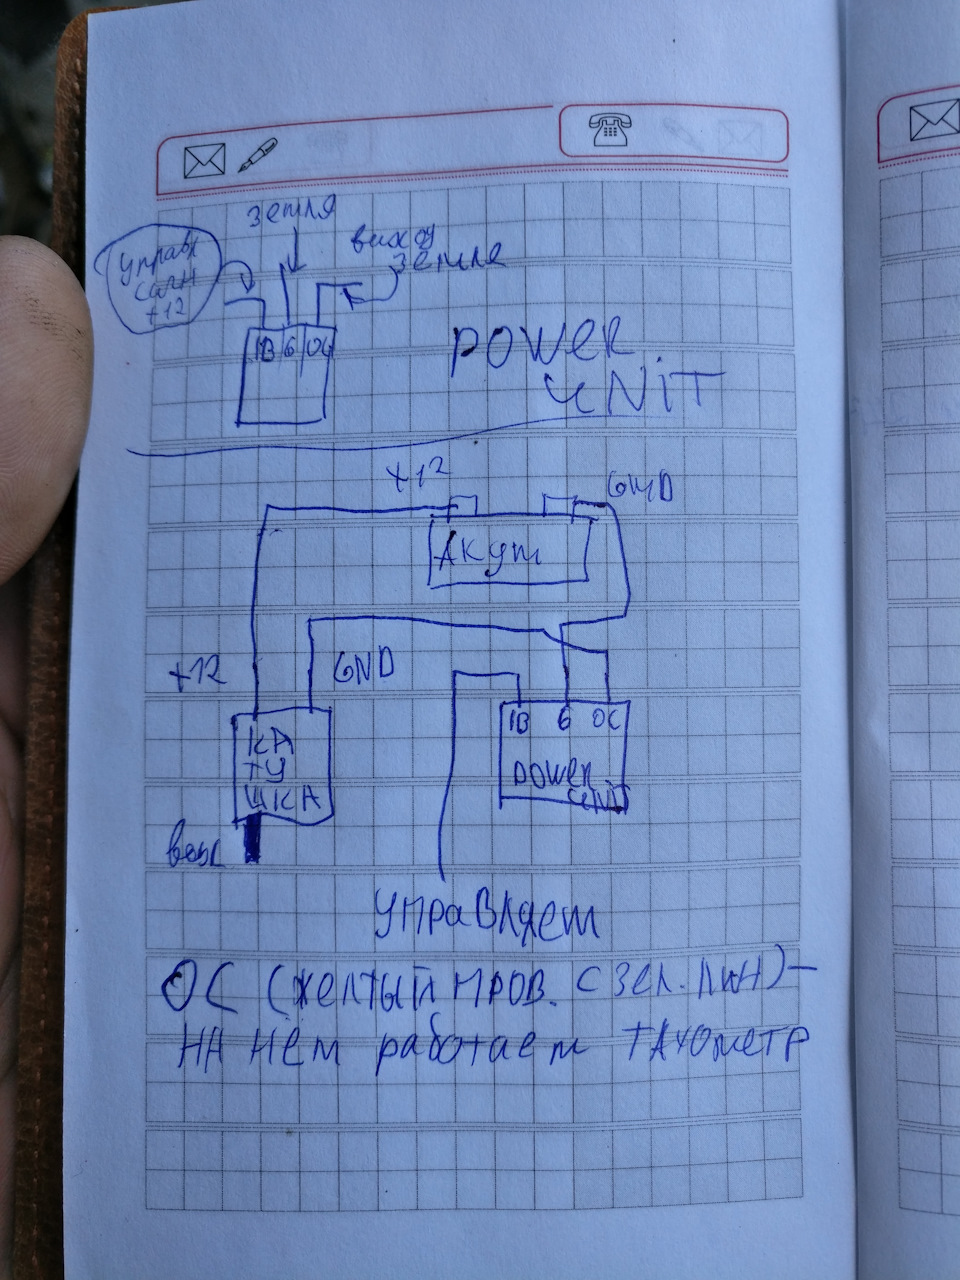 земля
выход
земля
управл
сигн
+12
IB G OC
POWER
UNiT
+12
GND
Акум
+12
GND
IB G OC
КА
ТУ
ШКА
power
UNiT
управляет
ОС (желтый пров. с зел. лин) –
НА нём работает ТАХОметр